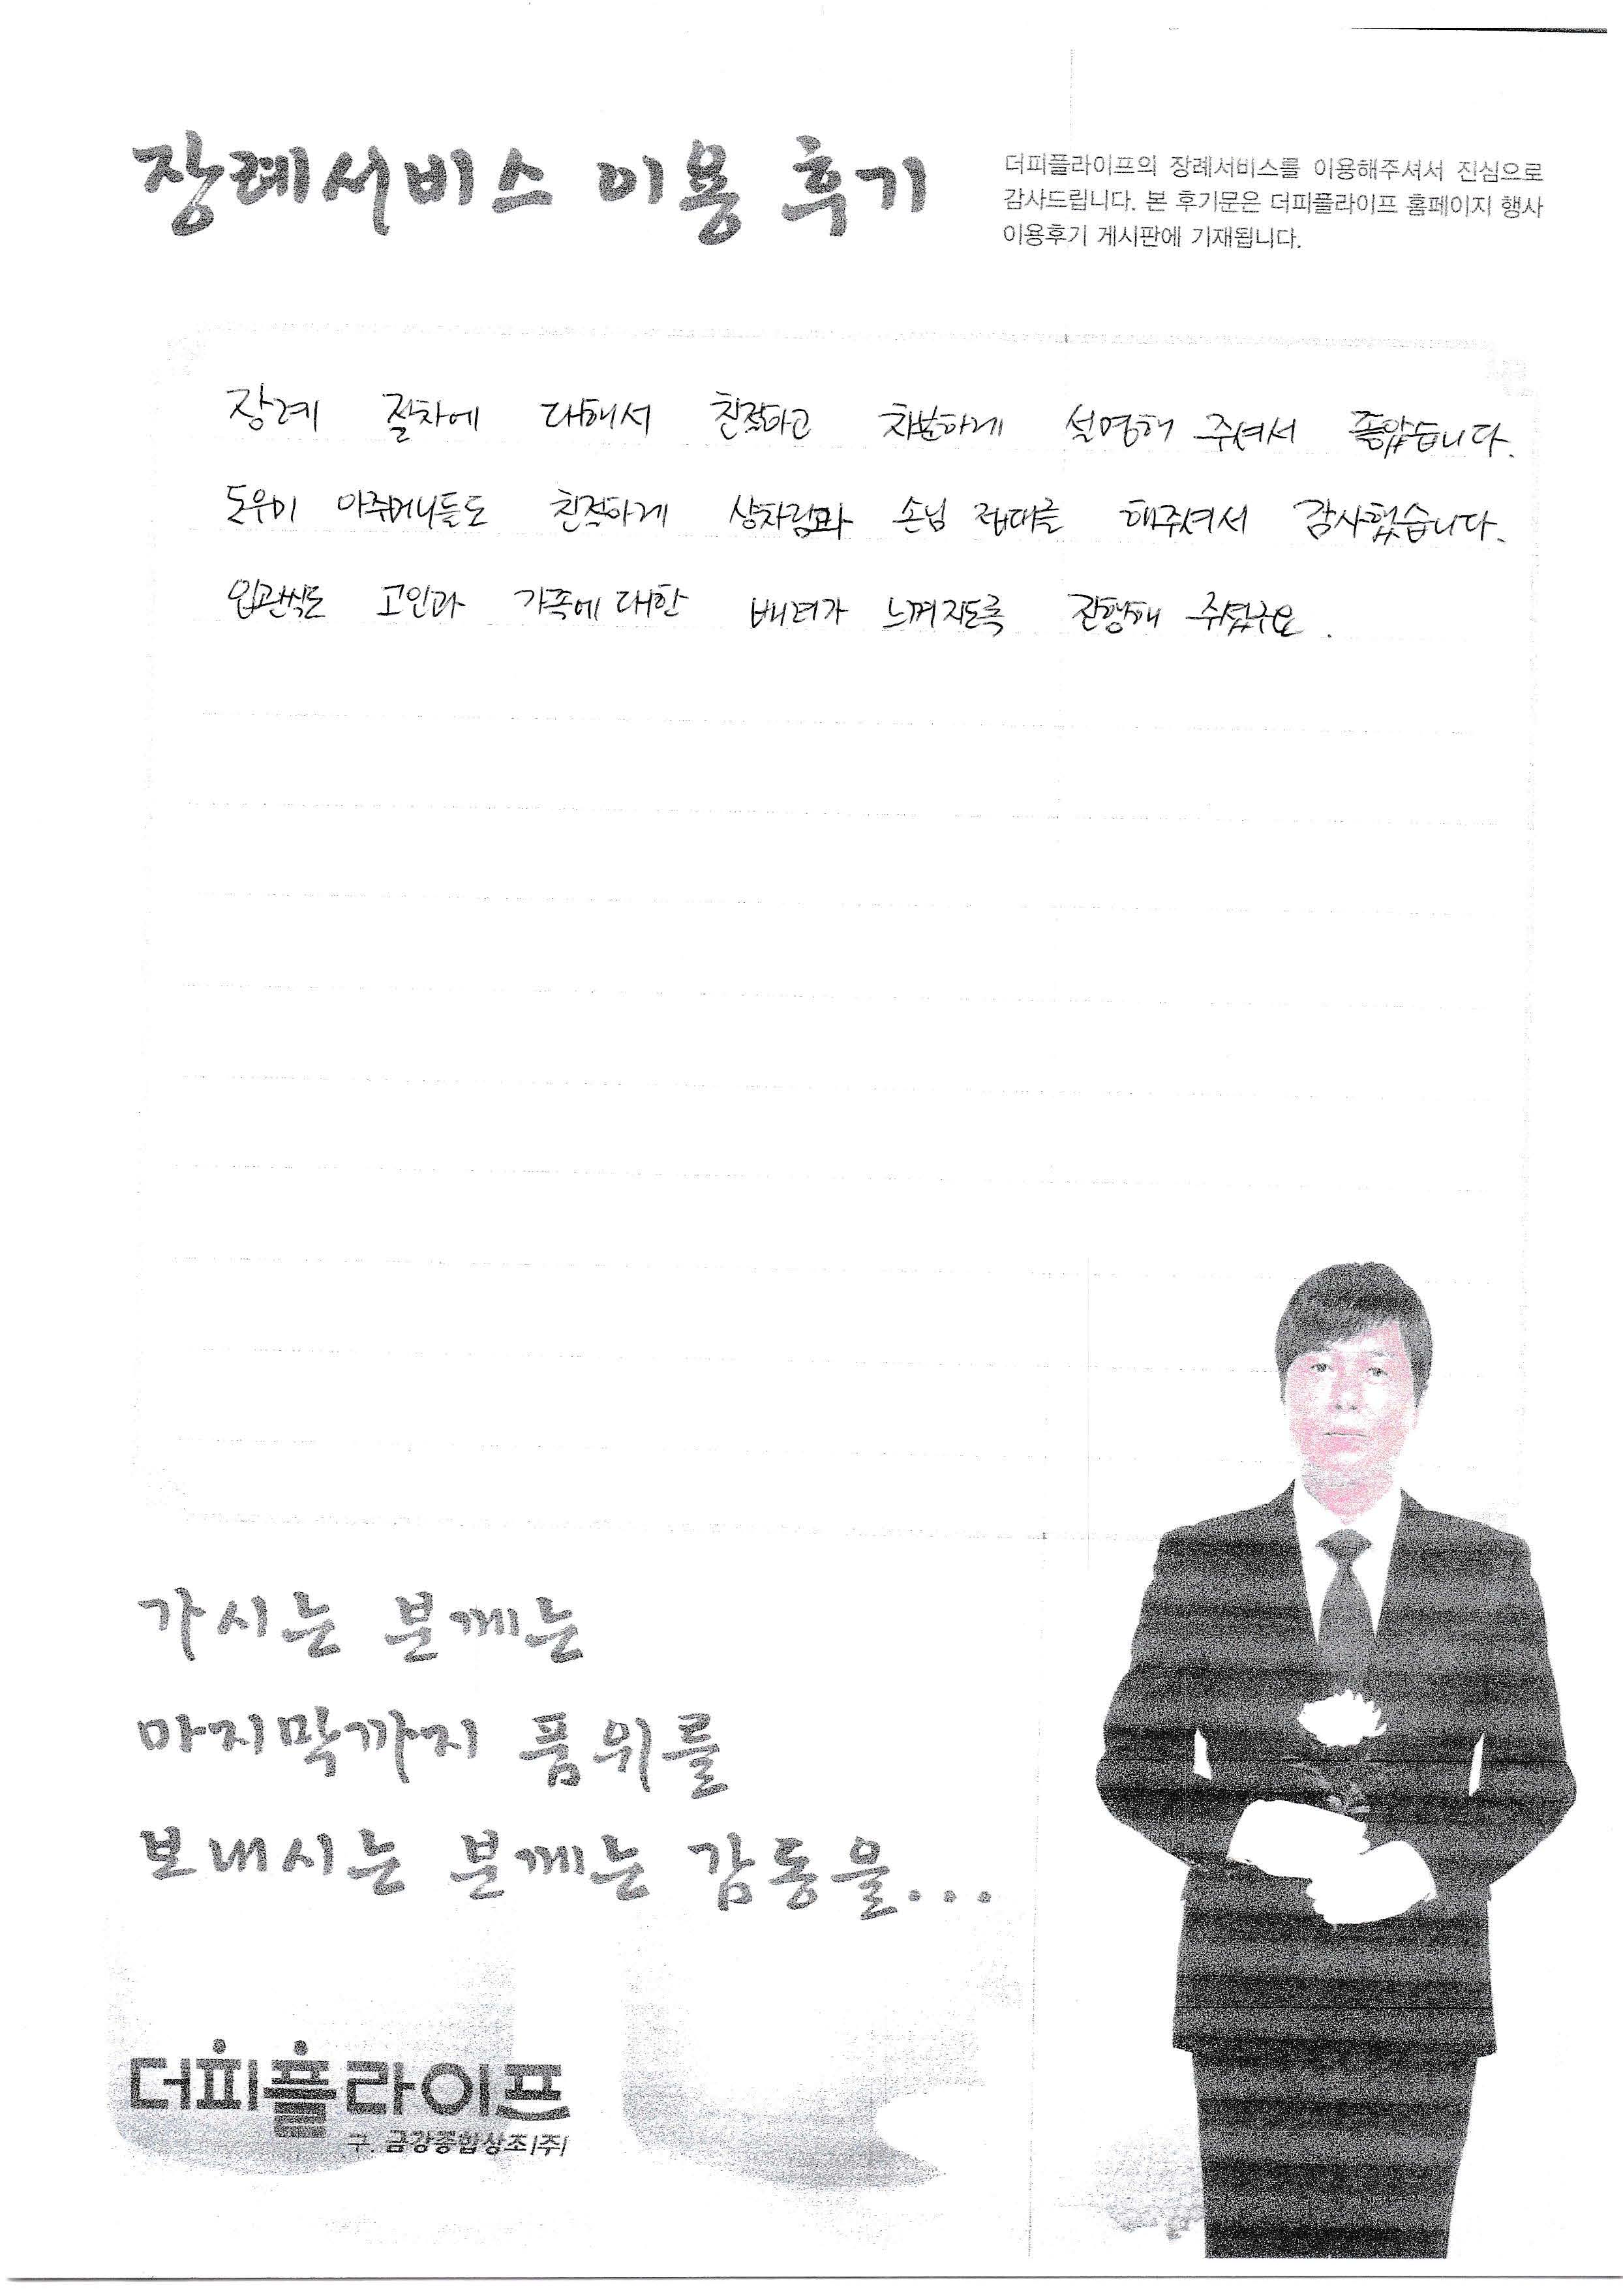 장례서비스 이용 후기
더피플라이프의 장례서비스를 이용해주셔서 진심으로
감사드립니다. 본 후기문은 더피플라이프 홈페이지 행사
이용후기 게시판에 기재됩니다.
장례 절차에 대해서 친절하고 차분하게 설명해 주셔서 좋았습니다.
도우미 아주머니들도 친절하게 상차림과 손님 접대를 해주셔서 감사했습니다.
입관식도 고인과 가족에 대한 배려가 느껴지도록 진행해 주셨구요.
가시는 분께는
마지막까지 품위를
보내시는 분께는 감동을...
더피플라이프
구. 금강종합상조(주)